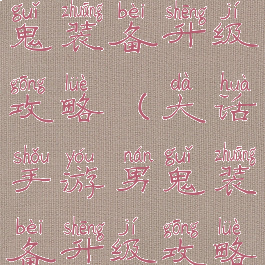 guǐ zhuāng bèi shēng jí
鬼装备升级
gōng lüè dà huà
攻略（大话
shǒu yóu nán guǐ zhuāng
手游男鬼装
bèi shēng jí gōng lüè
备升级攻略